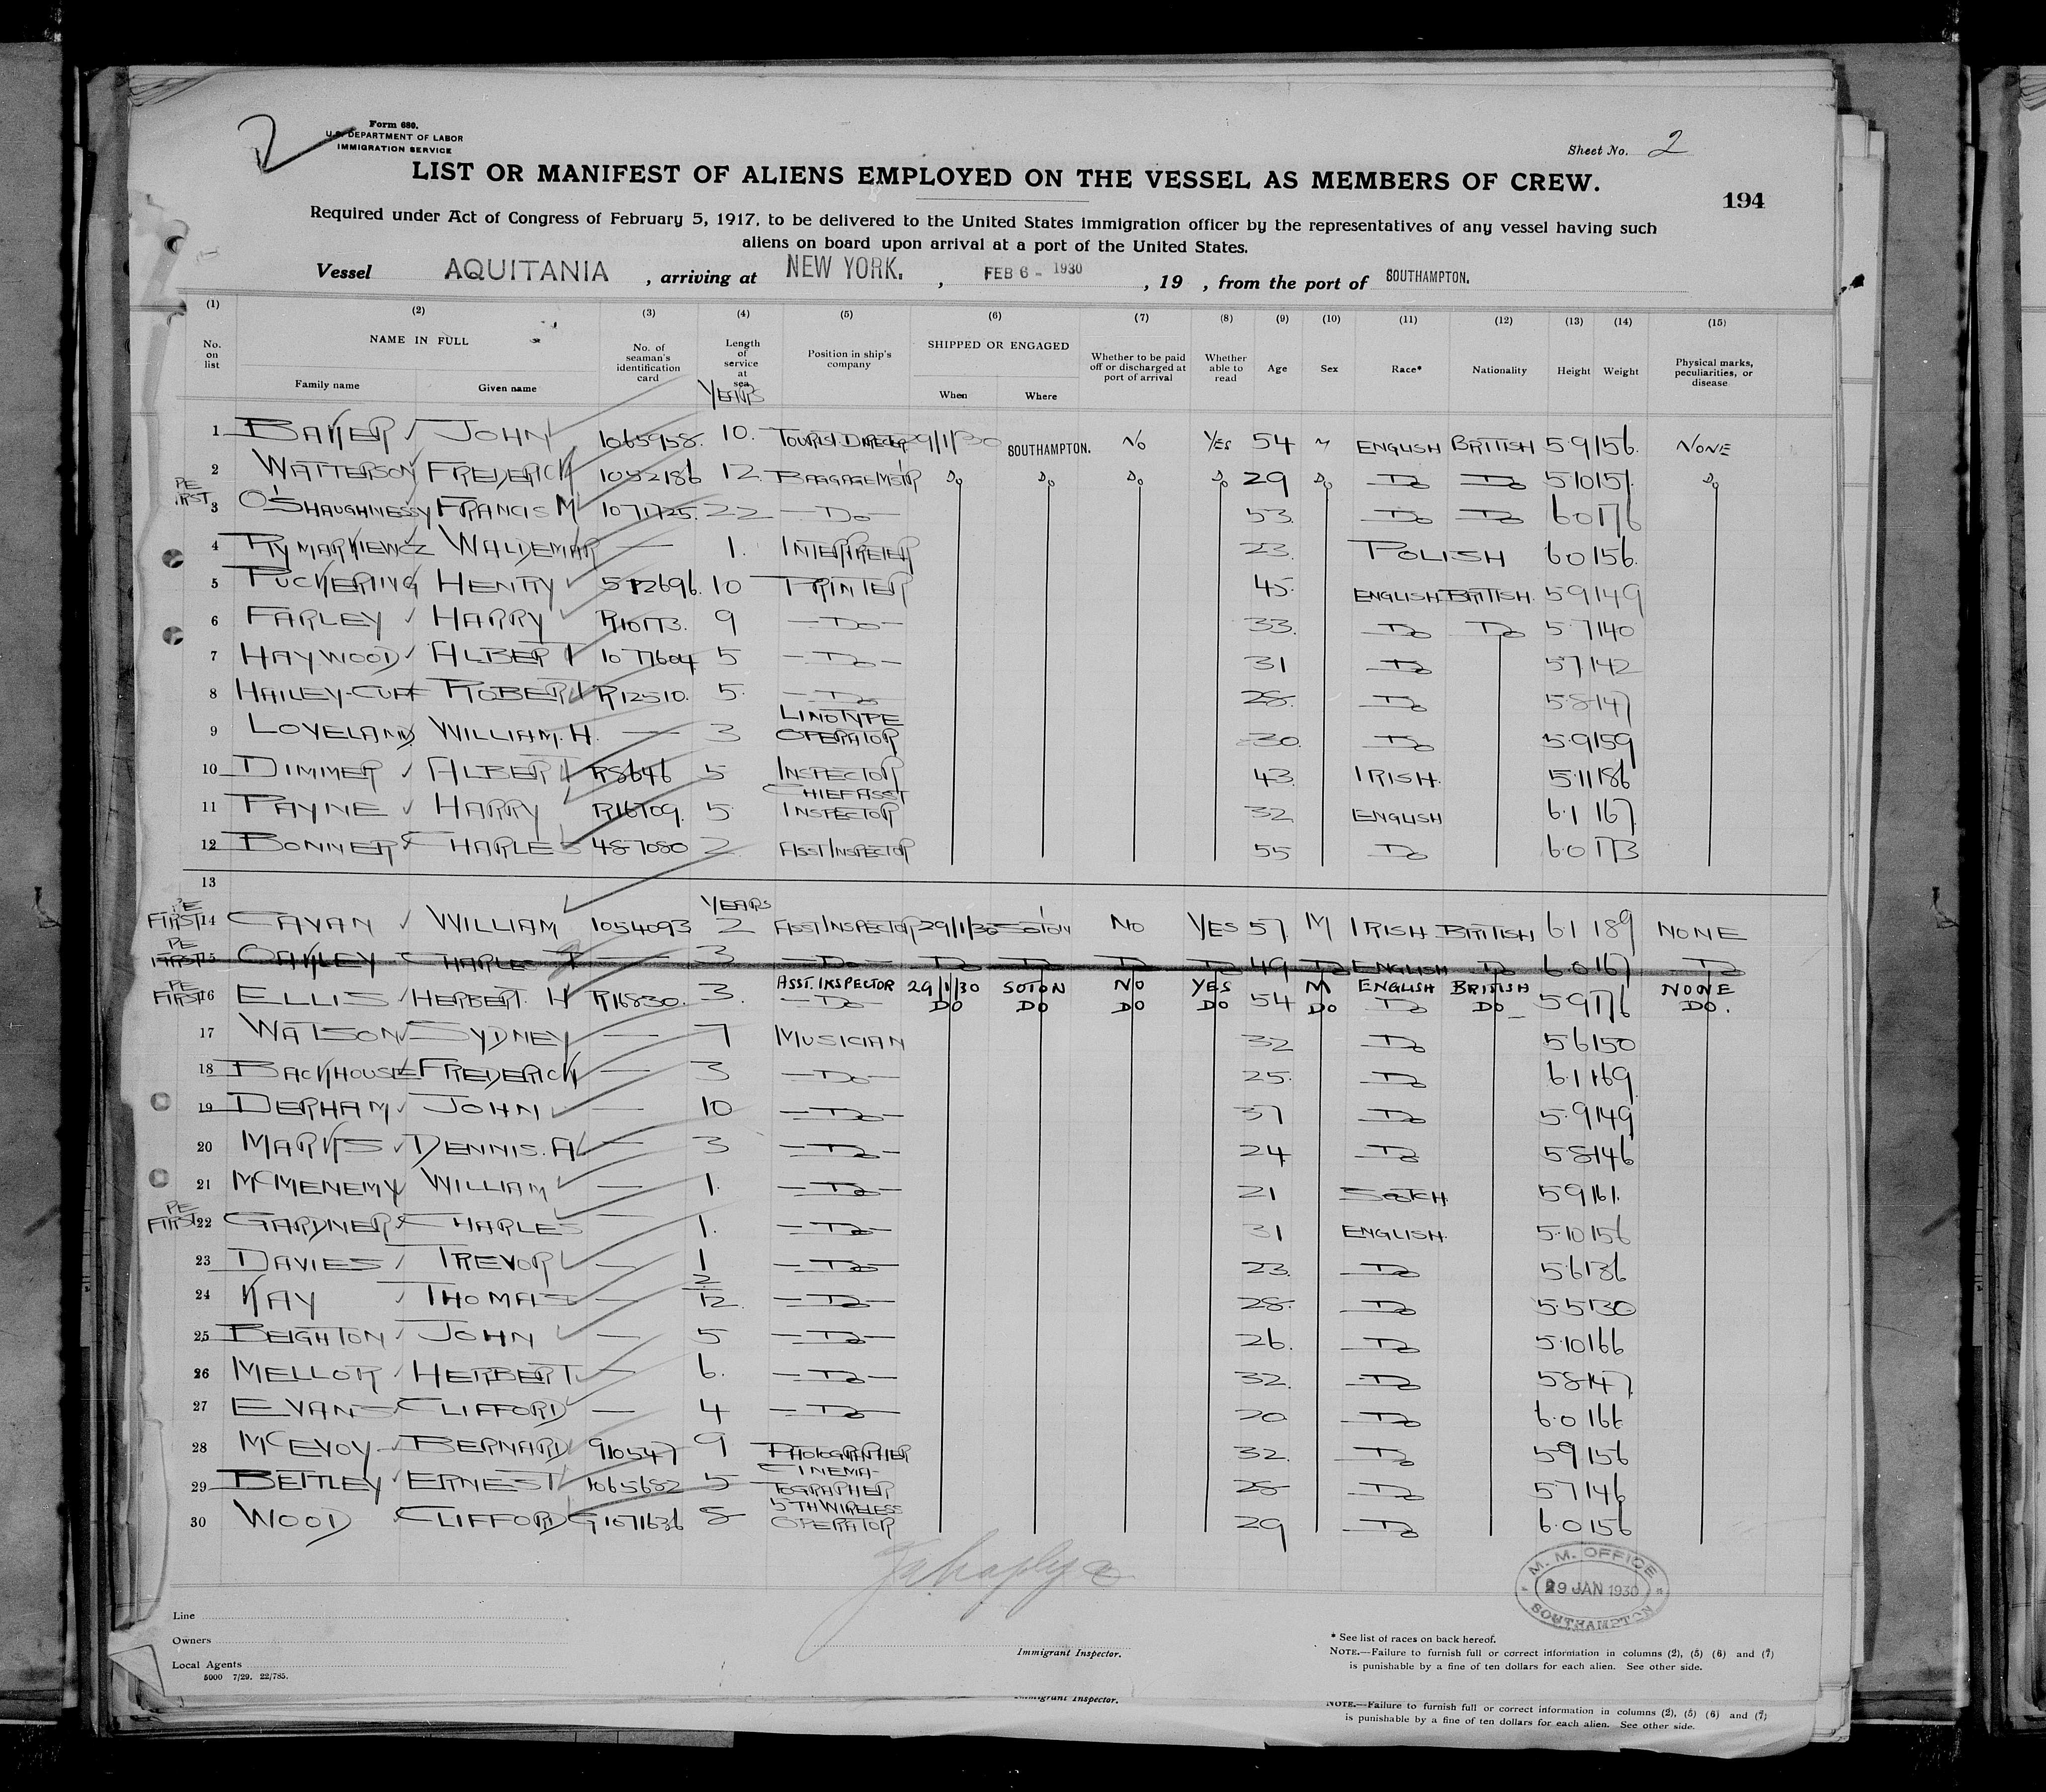 Form 680.
U.S. DEPARTMENT OF LABOR
IMMIGRATION SERVICE
Sheet No. 2
LIST OR MANIFEST OF ALIENS EMPLOYED ON THE VESSEL AS MEMBERS OF CREW.
194
Required under Act of Congress of February 5, 1917, to be delivered to the United States immigration officer by the representatives of any vessel having such
aliens on board upon arrival at a port of the United States.
Vessel AQUITANIA , arriving at NEW YORK. , FEB 6 - 1930 , 19 , from the port of SOUTHAMPTON.
(1) (2) (3) (4) (5) (6) (7) (8) (9) (10) (11) (12) (13) (14) (15)
No. on list NAME IN FULL Family name Given name No. of seaman's identification card Length of service at sea YEARS Position in ship's company SHIPPED OR ENGAGED When Where Whether to be paid off or discharged at port of arrival Whether able to read Age Sex Race* Nationality Height Weight Physical marks, peculiarities, or disease
1 BAKER JOHN 1065958. 10. TOURIST DIRECTOR 29/1/30 SOUTHAMPTON. NO YES 54 M ENGLISH BRITISH 5.9 156. NONE
2 WATTERSON FREDERICK 1052186 12. BAGGAGE MSTR Do Do Do Do 29 Do Do Do 5.10 151. Do
PE FIRST 3 O'SHAUGHNESSY FRANCIS M 1071725. 22 Do 53. Do Do 6.0 176
4 RYMARKIEWCZ WALDEMAR — 1. INTERPRETER 23. POLISH 6.0 156.
5 PUCKERING HENRY 572696. 10 PRINTER 45. ENGLISH BRITISH. 5.9 149
6 FARLEY HARRY R10173. 9 Do 33. Do Do 5.7 140
7 HAYWOOD ALBERT 1077604 5 Do 31 Do 5.7 142
8 HAILEY-CUFF ROBERT R12510. 5. Do 28. Do 5.8 147
9 LOVELAND WILLIAM. H. — 3 LINOTYPE OPERATOR 30. Do 5.9 159
10 DIMMER ALBERT R8646 5 INSPECTOR 43. IRISH. 5.11 186
11 PAYNE HARRY R16709. 5 CHIEF ASST INSPECTOR 32 ENGLISH 6.1 167.
12 BONNER CHARLES 487080 2. ASST INSPECTOR 55 Do 6.0 173
13
YEARS
PE FIRST 14 CAVAN WILLIAM 1054093 2 ASST INSPECTOR 29/1/30 SOTON NO YES 57. M IRISH BRITISH 6.1 189 NONE
PE FIRST 15 OAKLEY CHARLES T — 3 Do Do Do Do Do 49 Do ENGLISH Do 6.0 167 Do
ASST. INSPECTOR 29/1/30 SOTON NO YES M ENGLISH BRITISH NONE
PE FIRST 16 ELLIS HERBERT. H R16830. 3. Do DO DO DO DO 54 DO Do DO 5.9 176 DO.
17 WATSON SYDNEY — 7 MUSICIAN 32 Do 5.6 150
18 BACKHOUSE FREDERICK — 3 Do 25. Do 6.1 169
19 DERHAM JOHN — 10 Do 37 Do 5.9 149
20 MARKS DENNIS. A — 3 Do 24 Do 5.8 146
21 McMENEMY WILLIAM — 1. Do 21 SCOTCH 5.9 161.
PE FIRST 22 GARDNER CHARLES 1. Do 31 ENGLISH. 5.10 156
23 DAVIES TREVOR — 1 Do 23. Do 5.6 136
24 KAY THOMAS — 2/12. Do 28. Do 5.5 130
25 BEIGHTON JOHN — 5 Do 26. Do 5.10 166
26 MELLOR HERBERT — 6. Do 32. Do 5.8 147
27 EVANS CLIFFORD — 4 Do 20 Do 6.0 166
28 McEVOY BERNARD 910547 9 PHOTOGRAPHER 32. Do 5.9 156
29 BETTLEY ERNEST 1065682 5 CINEMATOGRAPHER 28 Do 5.7 146
30 WOOD CLIFFORD G 1071636 8 5TH WIRELESS OPERATOR 29 Do 6.0 156
M. M. OFFICE
29 JAN 1930
SOUTHAMPTON
Line
Owners
Local Agents
5000 7/29. 22/785.
Immigrant Inspector.
* See list of races on back hereof.
NOTE.—Failure to furnish full or correct information in columns (2), (5) (6) and (7)
is punishable by a fine of ten dollars for each alien. See other side.
Immigrant Inspector.
NOTE.—Failure to furnish full or correct information in columns (2), (5) (6) and (7)
is punishable by a fine of ten dollars for each alien. See other side.